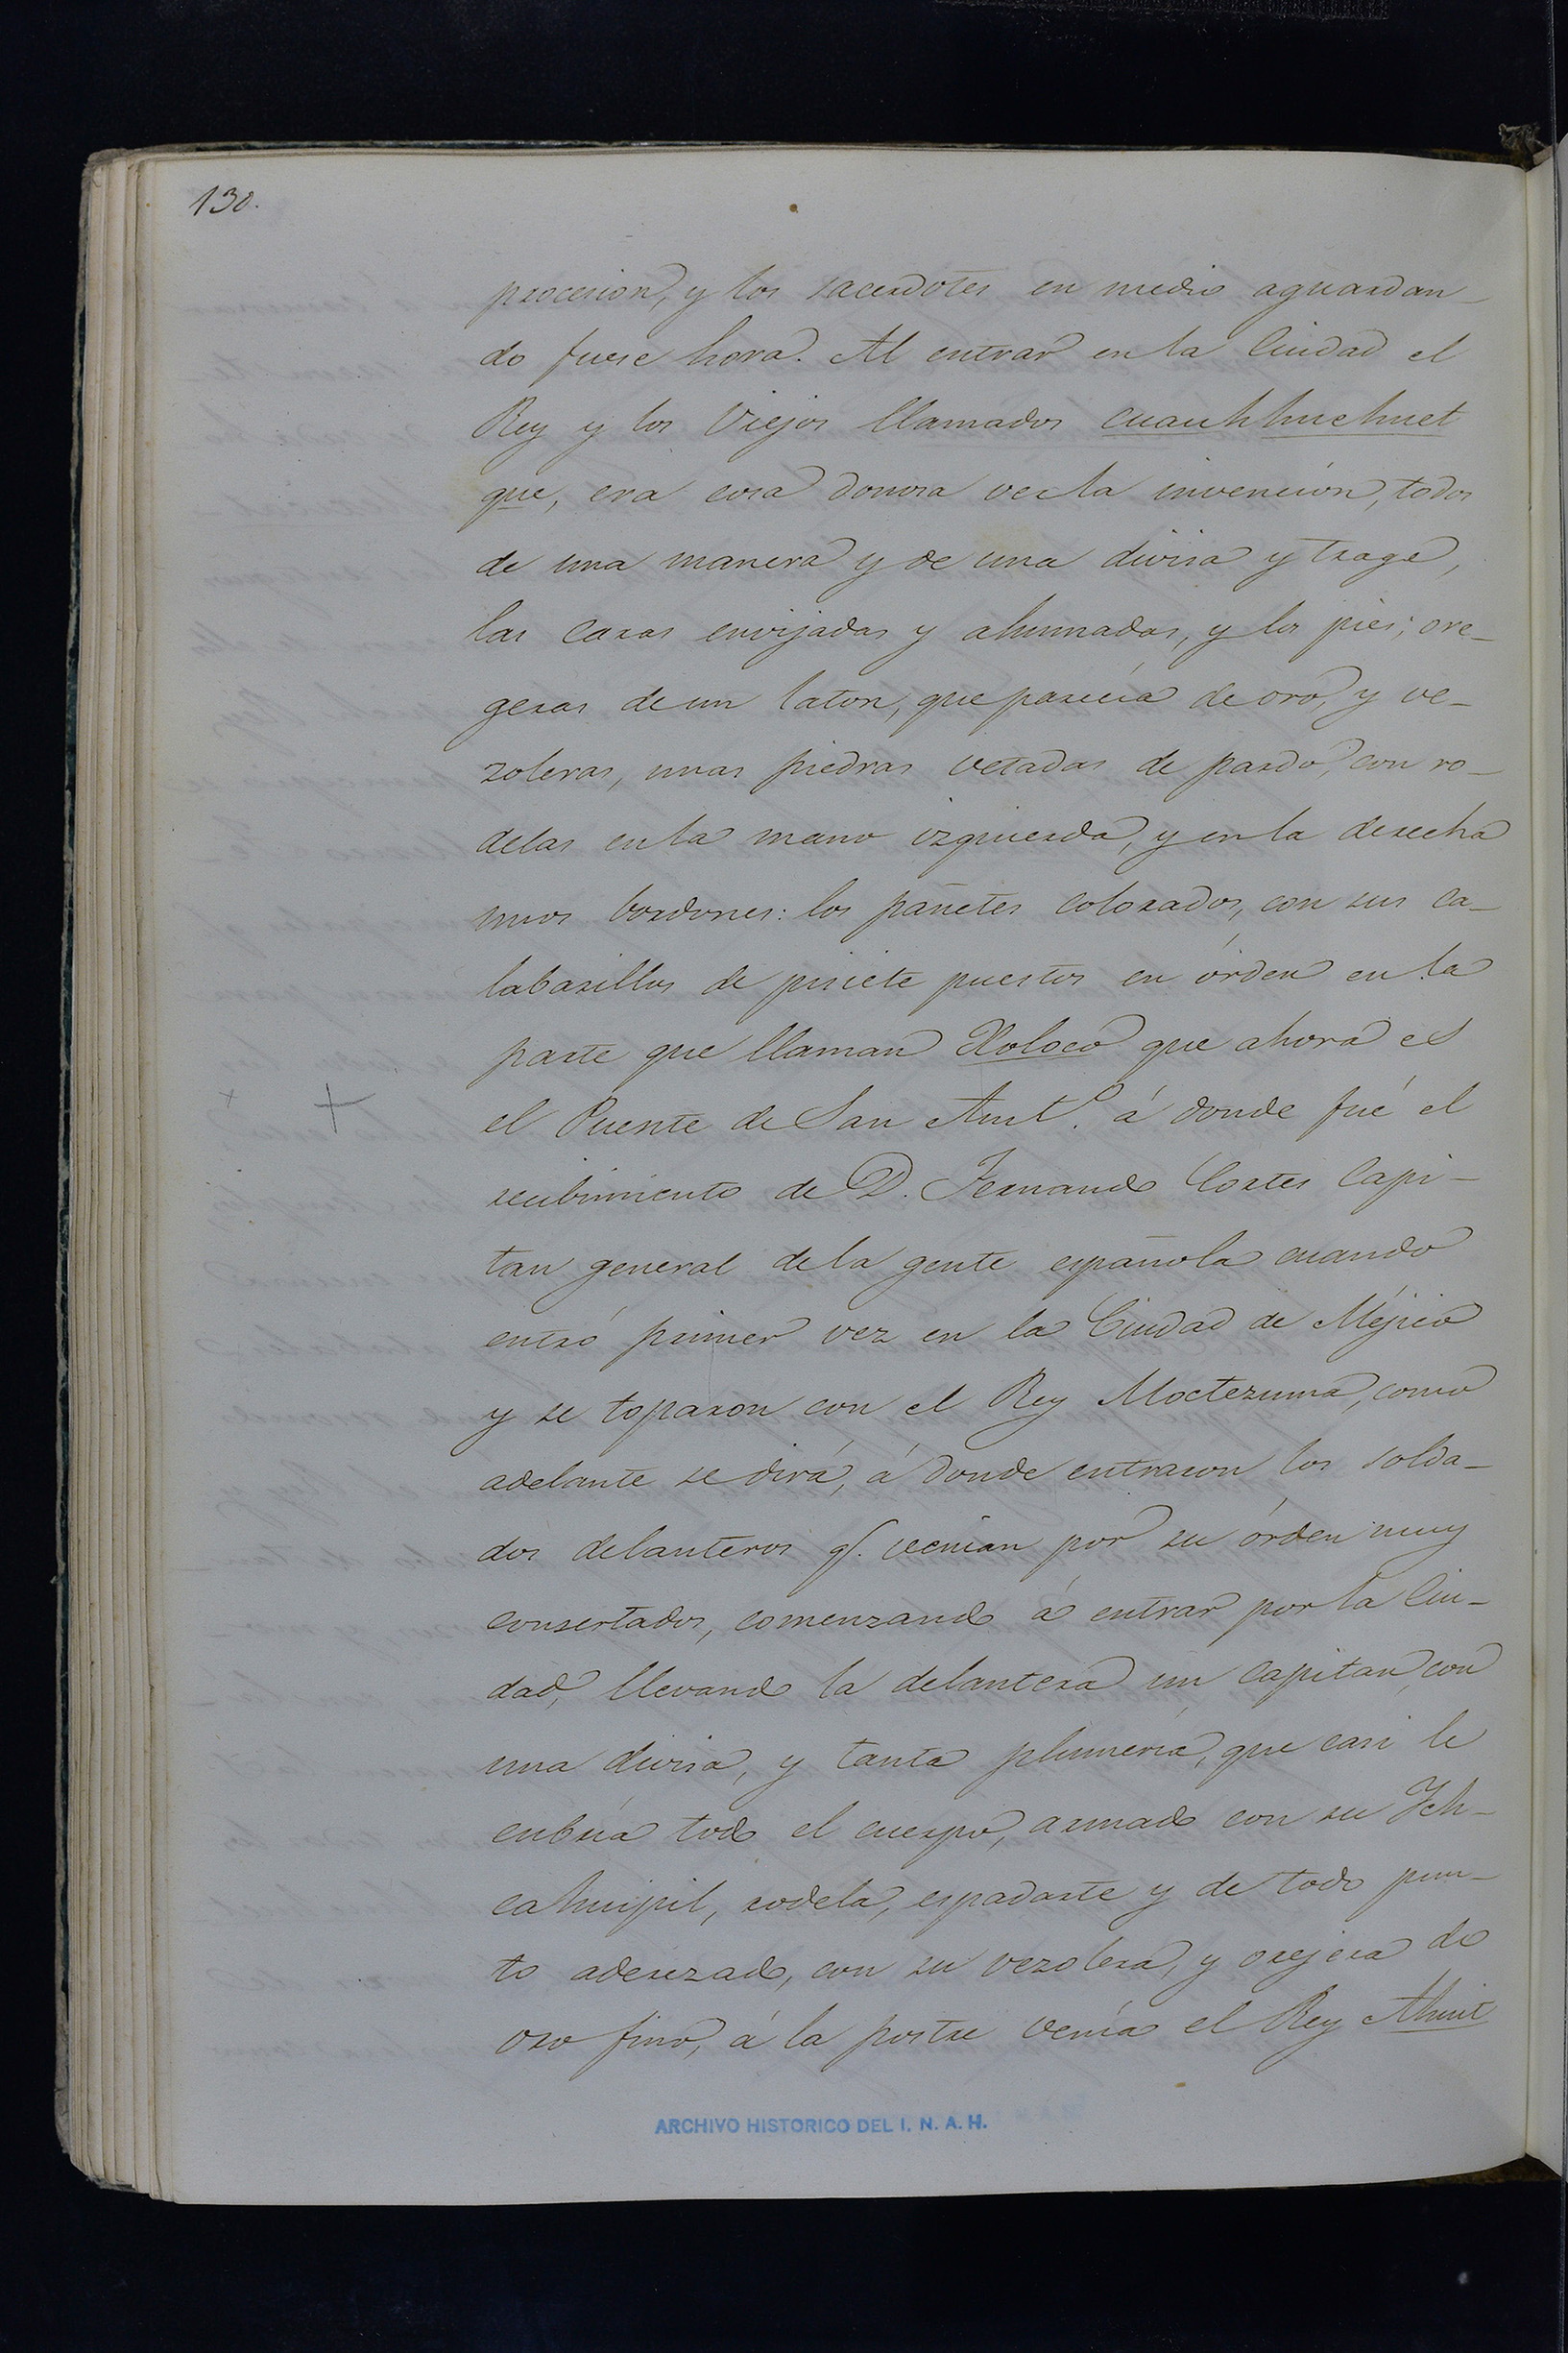 130.
procesion, y los sacerdotes en medio aguardan_
do fuese hora. Al entrar en la Ciudad el
Rey y los Viejos llamados cuauhhuehuet
que, era cosa donosa ver la invención, todos
de una manera y de una divisa y trage,
las caras envijadas y ahumadas, y los pies; ore_
geras de un laton, que parecía de oro, y ve_
zoleras, unas piedras vetadas de pardo, con ro_
delas en la mano izquierda, y en la derecha
unos bordones: los pañetes colorados, con sus ca_
labasillos de pisiete puestos en órden en la
parte que llaman Xoloco que ahora es
el Puente de San Antº. á donde fué el
recibimiento de D. Fernando Cortes Capi_
tan general de la gente española cuando
entró primer vez en la Ciudad de Méjico
y se toparon con el Rey Moctezuma, como
adelante se dirá, á donde entraron los solda_
dos delanteros q. venian por su órden muy
consertados, comenzando á entrar por la Ciu_
dad, llevando la delantera un capitan con
una divisa, y tanta plumería, que casi le
cubría todo el cuerpo, armado con su Ich_
cahuipil, rodela, espadarte y de todo pun_
to aderezado, con su vezolera, y orejera de
oro fino, á la postre venía el Rey Ahuit
ARCHIVO HISTORICO DEL I. N. A. H.